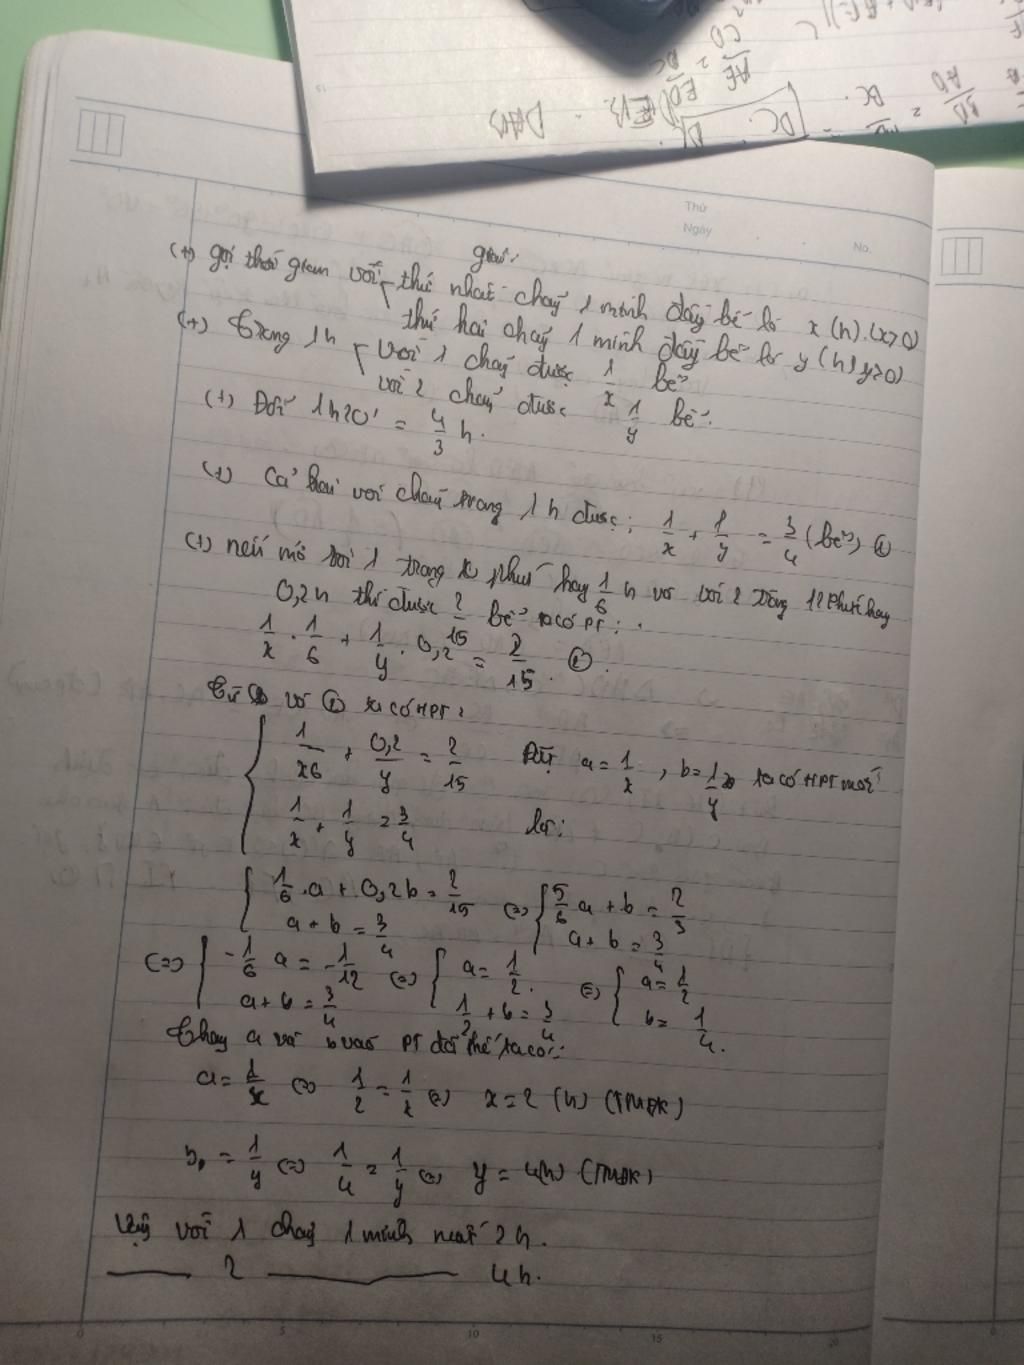 Thứ
Ngày
No.
giải:
(+) gọi thời gian vòi thứ nhất chảy 1 mình đầy bể là x (h). (x>0)
thứ hai chảy 1 mình đầy bể là y (h) y>0)
(+) Trong 1h vòi 1 chảy được 1/x bể
vòi 2 chảy được 1/y bể.
(+) Đổi 1h20' = 4/3 h.
(+) Cả hai vòi chảy trong 1 h được: 1/x + 1/y = 3/4 (bể) ①
(+) nếu mở vòi 1 trong 10 phút hay 1/6 h và vòi 2 trong 12 phút hay
0,2h thì được 2/15 bể ta có PT:
1/x . 1/6 + 1/y . 0,2 = 2/15 ②.
Từ ① và ② ta có HPT:
1/x6 + 0,2/y = 2/15 Đặt a = 1/x , b = 1/y ta có HPT mới
1/x + 1/y = 3/4 là:
1/6 .a + 0,2b = 2/15 (=) 5/6 a + b = 2/3
a + b = 3/4 a + b = 3/4
(=) -1/6 a = -1/12 (=) a = 1/2. (=) a = 1/2
a + b = 3/4 1/2 + b = 3/4 b = 1/4.
Thay a và b vào PT đổi thế ta có:
a = 1/x (=) 1/2 = 1/x (=) x = 2 (h) (TMĐK)
b = 1/y (=) 1/4 = 1/y (=) y = 4(h) (TMĐK)
Vậy vòi 1 chảy 1 mình mất 2 h.
2 4h.
0 5 10 15 20